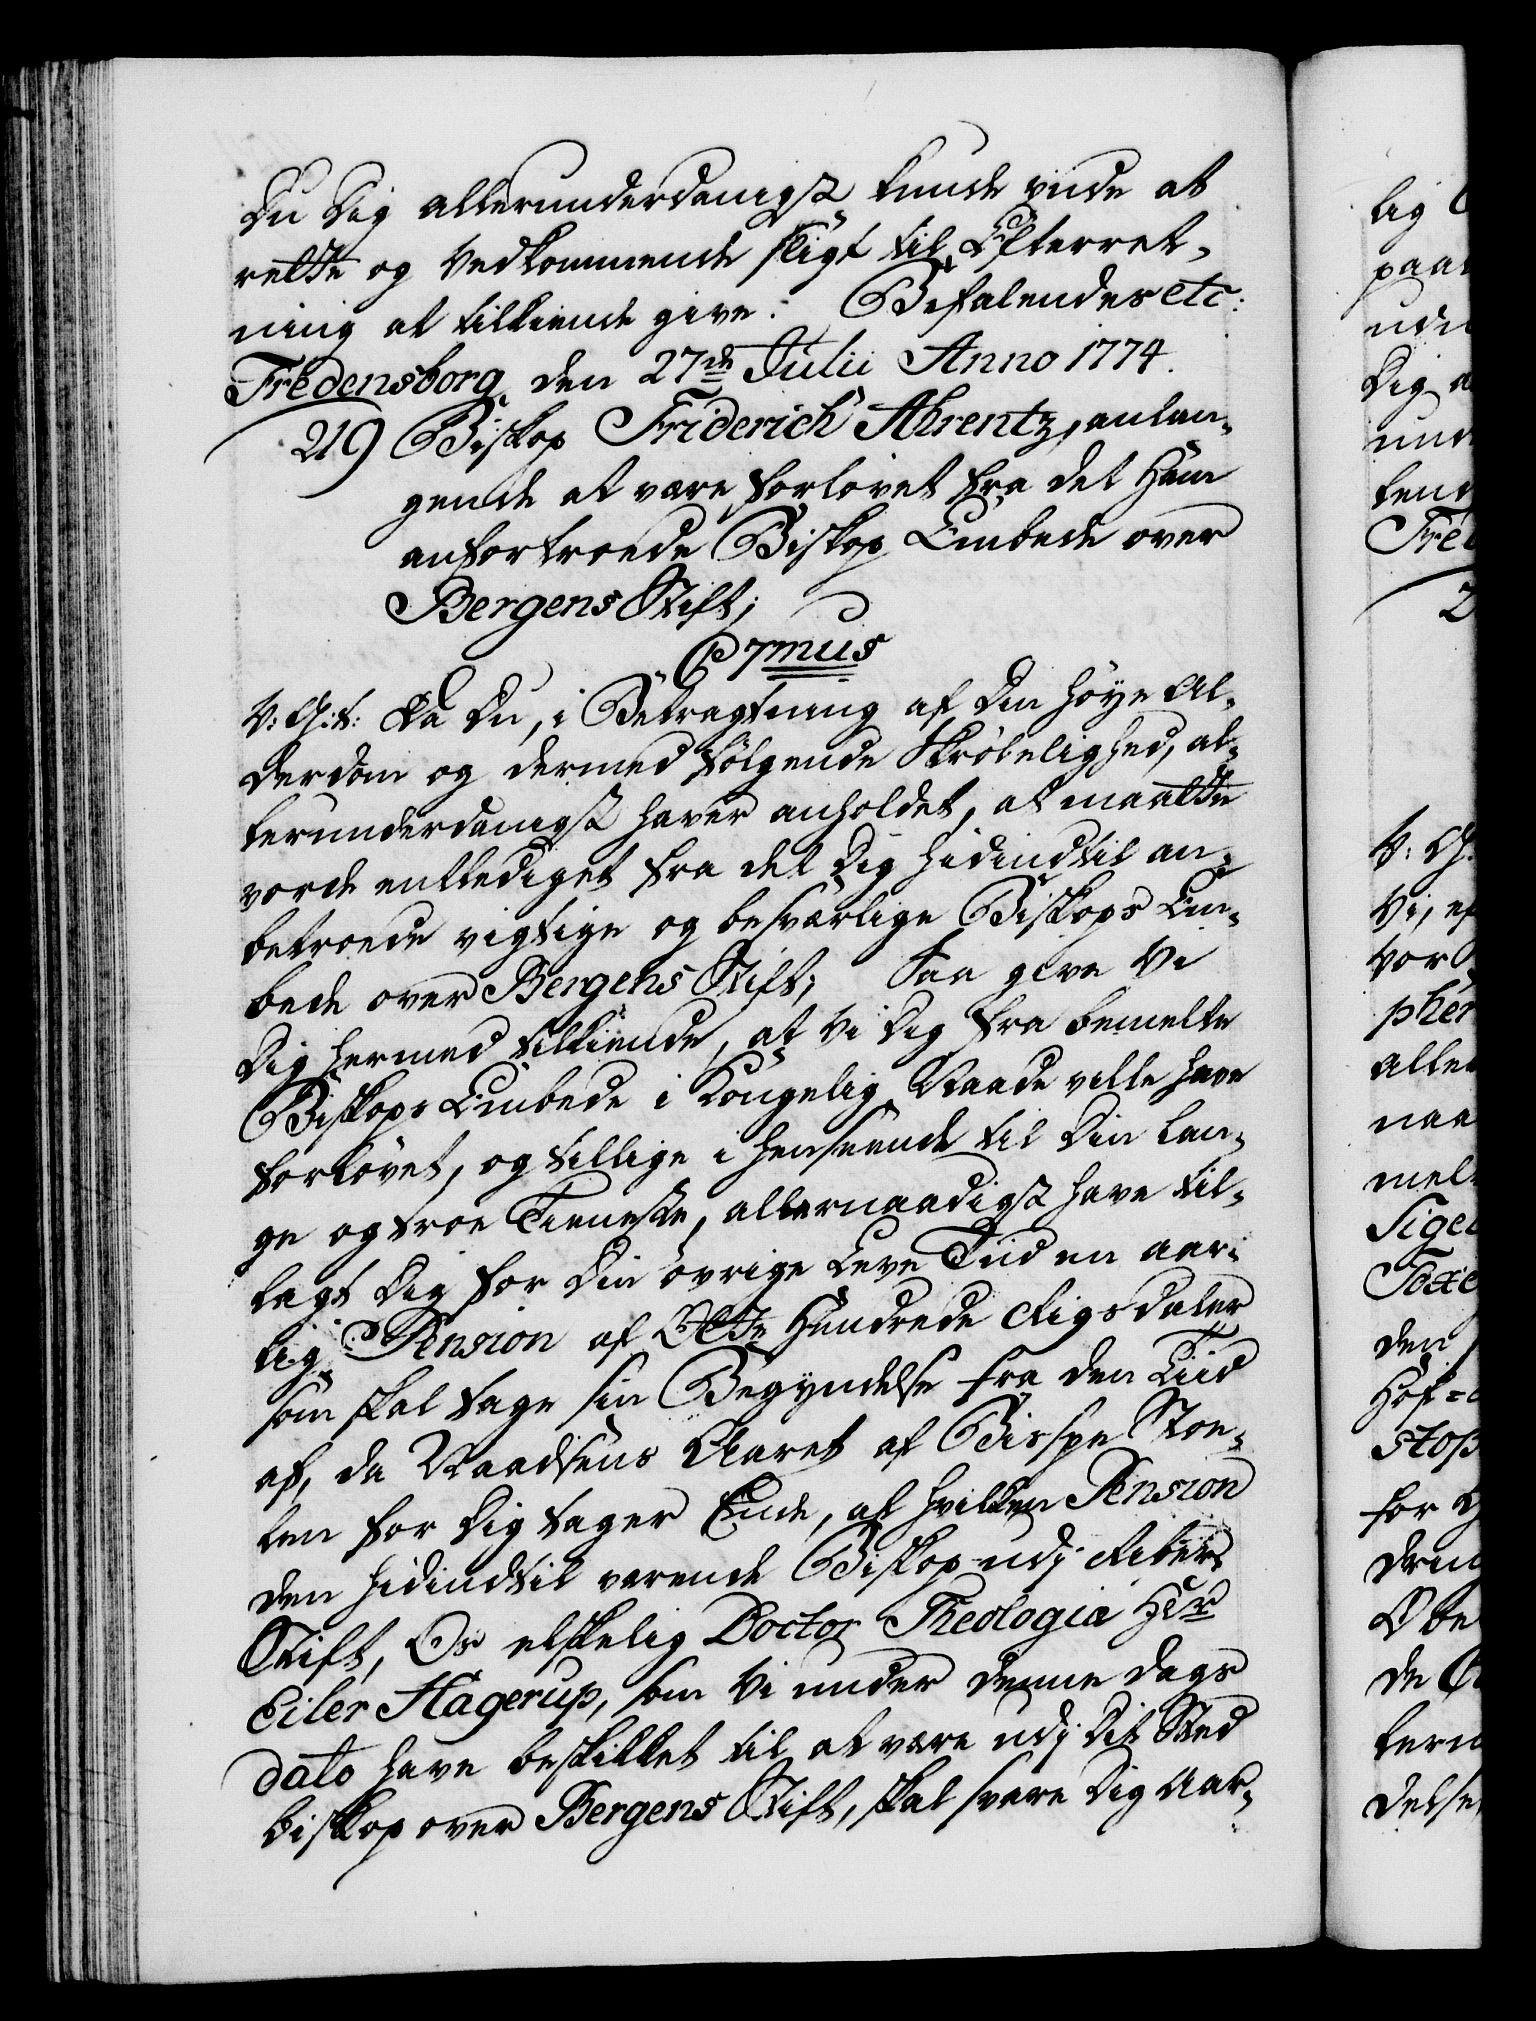 Du Dig allerunderdanigst kunde vide at
rette og Vedkommende sligt til Efterret-
ning at tilkiende give. Befalendes etc:
Fredensborg den 27de Julii Anno 1774.
219 Biskop Friderich Ahrentz, anlan-
gende at være forlovet fra det Ham
anfortroede Biskop Embede over
Bergens Stift;
C7mus
V: G: T: Da Du, i Betragtning af Din høye Al-
derdom og dermed følgende Skrøbelighed, al-
lerunderdanigst haver anholdet, at maatte
vorde entlediget fra det Dig hidindtil an-
betroede vigtige og besværlige Biskops Em-
bede over Bergens Stift; Saa give Vi
Dig hermed tilkiende, at Vi Dig fra bemelte
Biskops Embede i Kongelig Naade ville have
forlovet, og tillige i Henseende til Din lan-
ge og troe Tieneste, allernaadigst have til-
lagt Dig for Din øvrige Leve Tiid en aar-
lig Pension af Otte Hundrede Rigsdaler
som skal tage sin Begyndelse fra den Tiid
af, da Naadsens Aaret af Bispe Stoe-
len for Dig tager Ende, af hvilken Pension
den hidindtil værende Biskop udj Ribers
Stift, Os elskelig Doctor Theologiæ Hr
Eiler Hagerup, som Vi under denne Dags
dato have beskikket til at være udj Dit Sted
Biskop over Bergens Stift, skal svare Dig Aar-